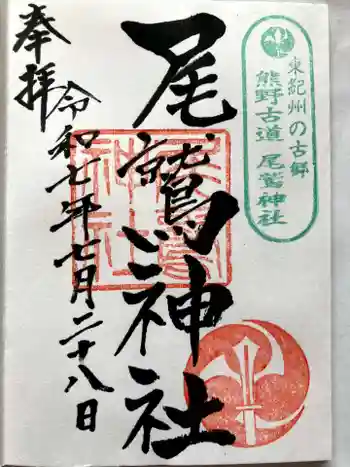 東紀州の古郷
熊野古道 尾鷲神社
尾鷲神社
奉拝
令和七年七月二十八日
尾鷲神社